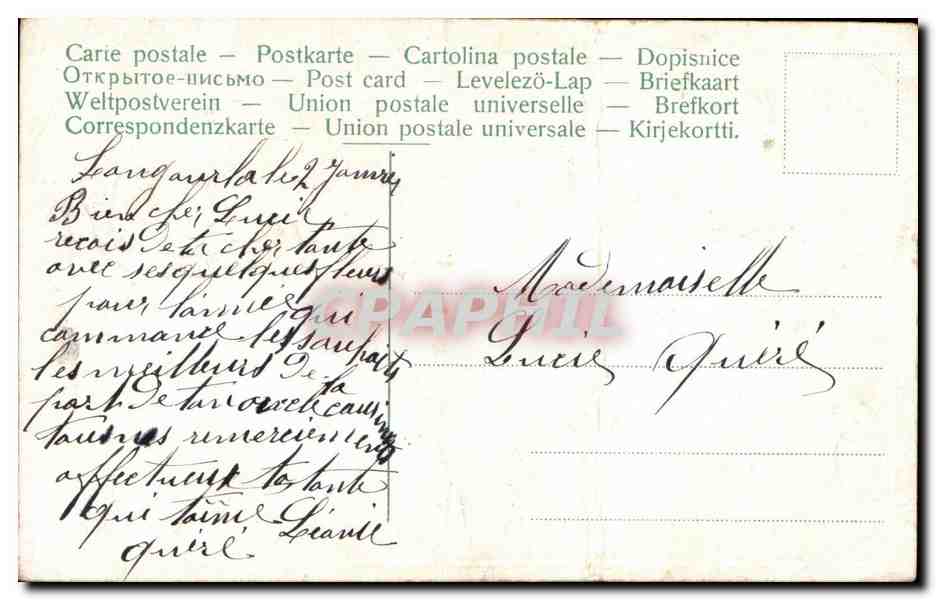 Carte postale — Postkarte — Cartolina postale — Dopisnice
Открытое-письмо — Post card — Levelezö-Lap — Briefkaart
Weltpostverein — Union postale universelle — Brefkort
Correspondenzkarte — Union postale universale — Kirjekortti.
le 2
Bien cher Lucie
recois de ta cher tante
avec ses quelques fleurs
pour l'année qui
commance les souhaits
les meilleurs de
part de ton oncle la cousine
tous mes remerciements
affectueux ta tante
qui t'aime Léonie
Quéré
Mademoiselle
Lucie Quéré
CPAPHIL